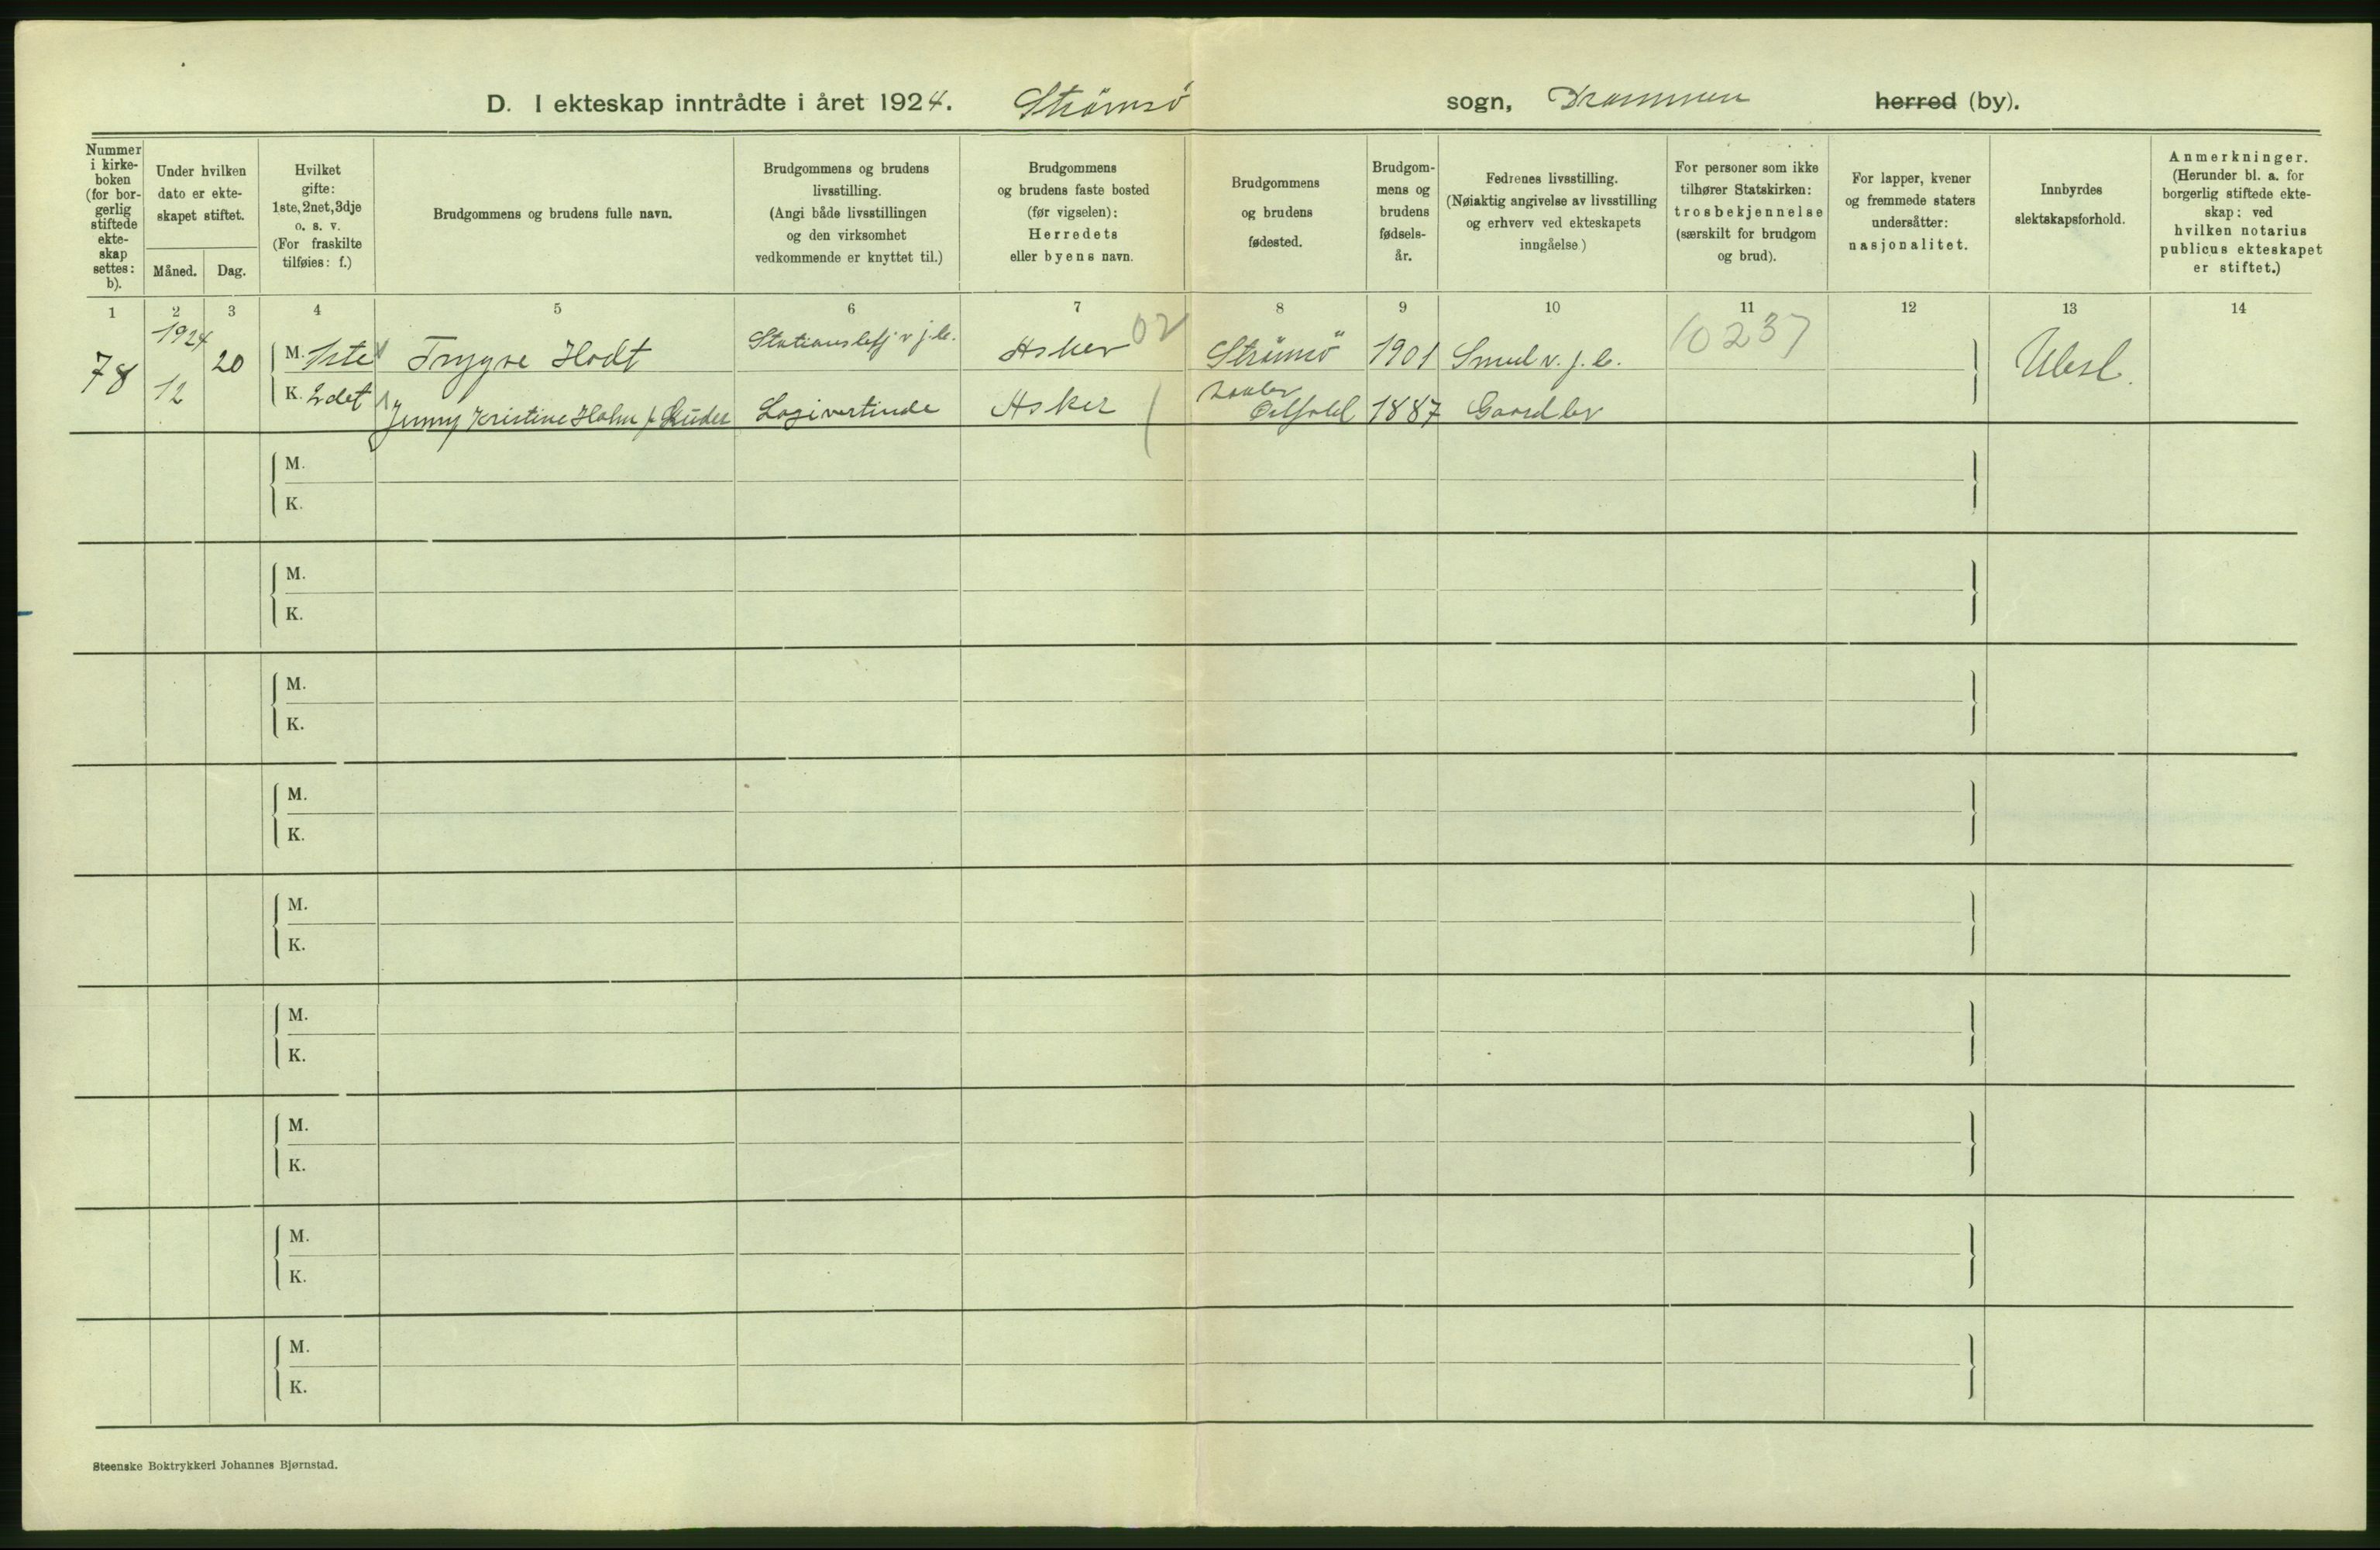 D. I ekteskap inntrådte i året 1924. Strømsö sogn, Drammen herred (by).
Nummer i kirke-boken (for bor-gerlig stiftede ekte-skap settes: b).
Under hvilken dato er ekte-skapet stiftet.
Måned. Dag.
Hvilket gifte: 1ste, 2net, 3dje o. s. v. (For fraskilte tilføies: f.)
Brudgommens og brudens fulle navn.
Brudgommens og brudens livsstilling. (Angi både livsstillingen og den virksomhet vedkommende er knyttet til.)
Brudgommens og brudens faste bosted (før vigselen): Herredets eller byens navn.
Brudgommens og brudens fødested.
Brudgom-mens og brudens fødsels-år.
Fedrenes livsstilling. (Nøiaktig angivelse av livsstilling og erhverv ved ekteskapets inngåelse.)
For personer som ikke tilhører Statskirken: trosbekjennelse (særskilt for brudgom og brud).
For lapper, kvener og fremmede staters undersåtter: nasjonalitet.
Innbyrdes slektskapsforhold.
Anmerkninger. (Herunder bl. a. for borgerlig stiftede ekte-skap: ved hvilken notarius publicus ekteskapet er stiftet.)
1 2 3 4 5 6 7 8 9 10 11 12 13 14
78 1924 12 20
M. 1ste Trygve Hodt Stationsbetj. v j.b. Asker 02 Strömsö 1901 Smed v. j. b. 10237 Ubesl.
K. 2det Jenny Kristine Holm f. Asker Østfold 1887 Gaardbr
M.
K.
M.
K.
M.
K.
M.
K.
M.
K.
M.
K.
M.
K.
M.
K.
M.
K.
Steenske Boktrykkeri Johannes Bjørnstad.